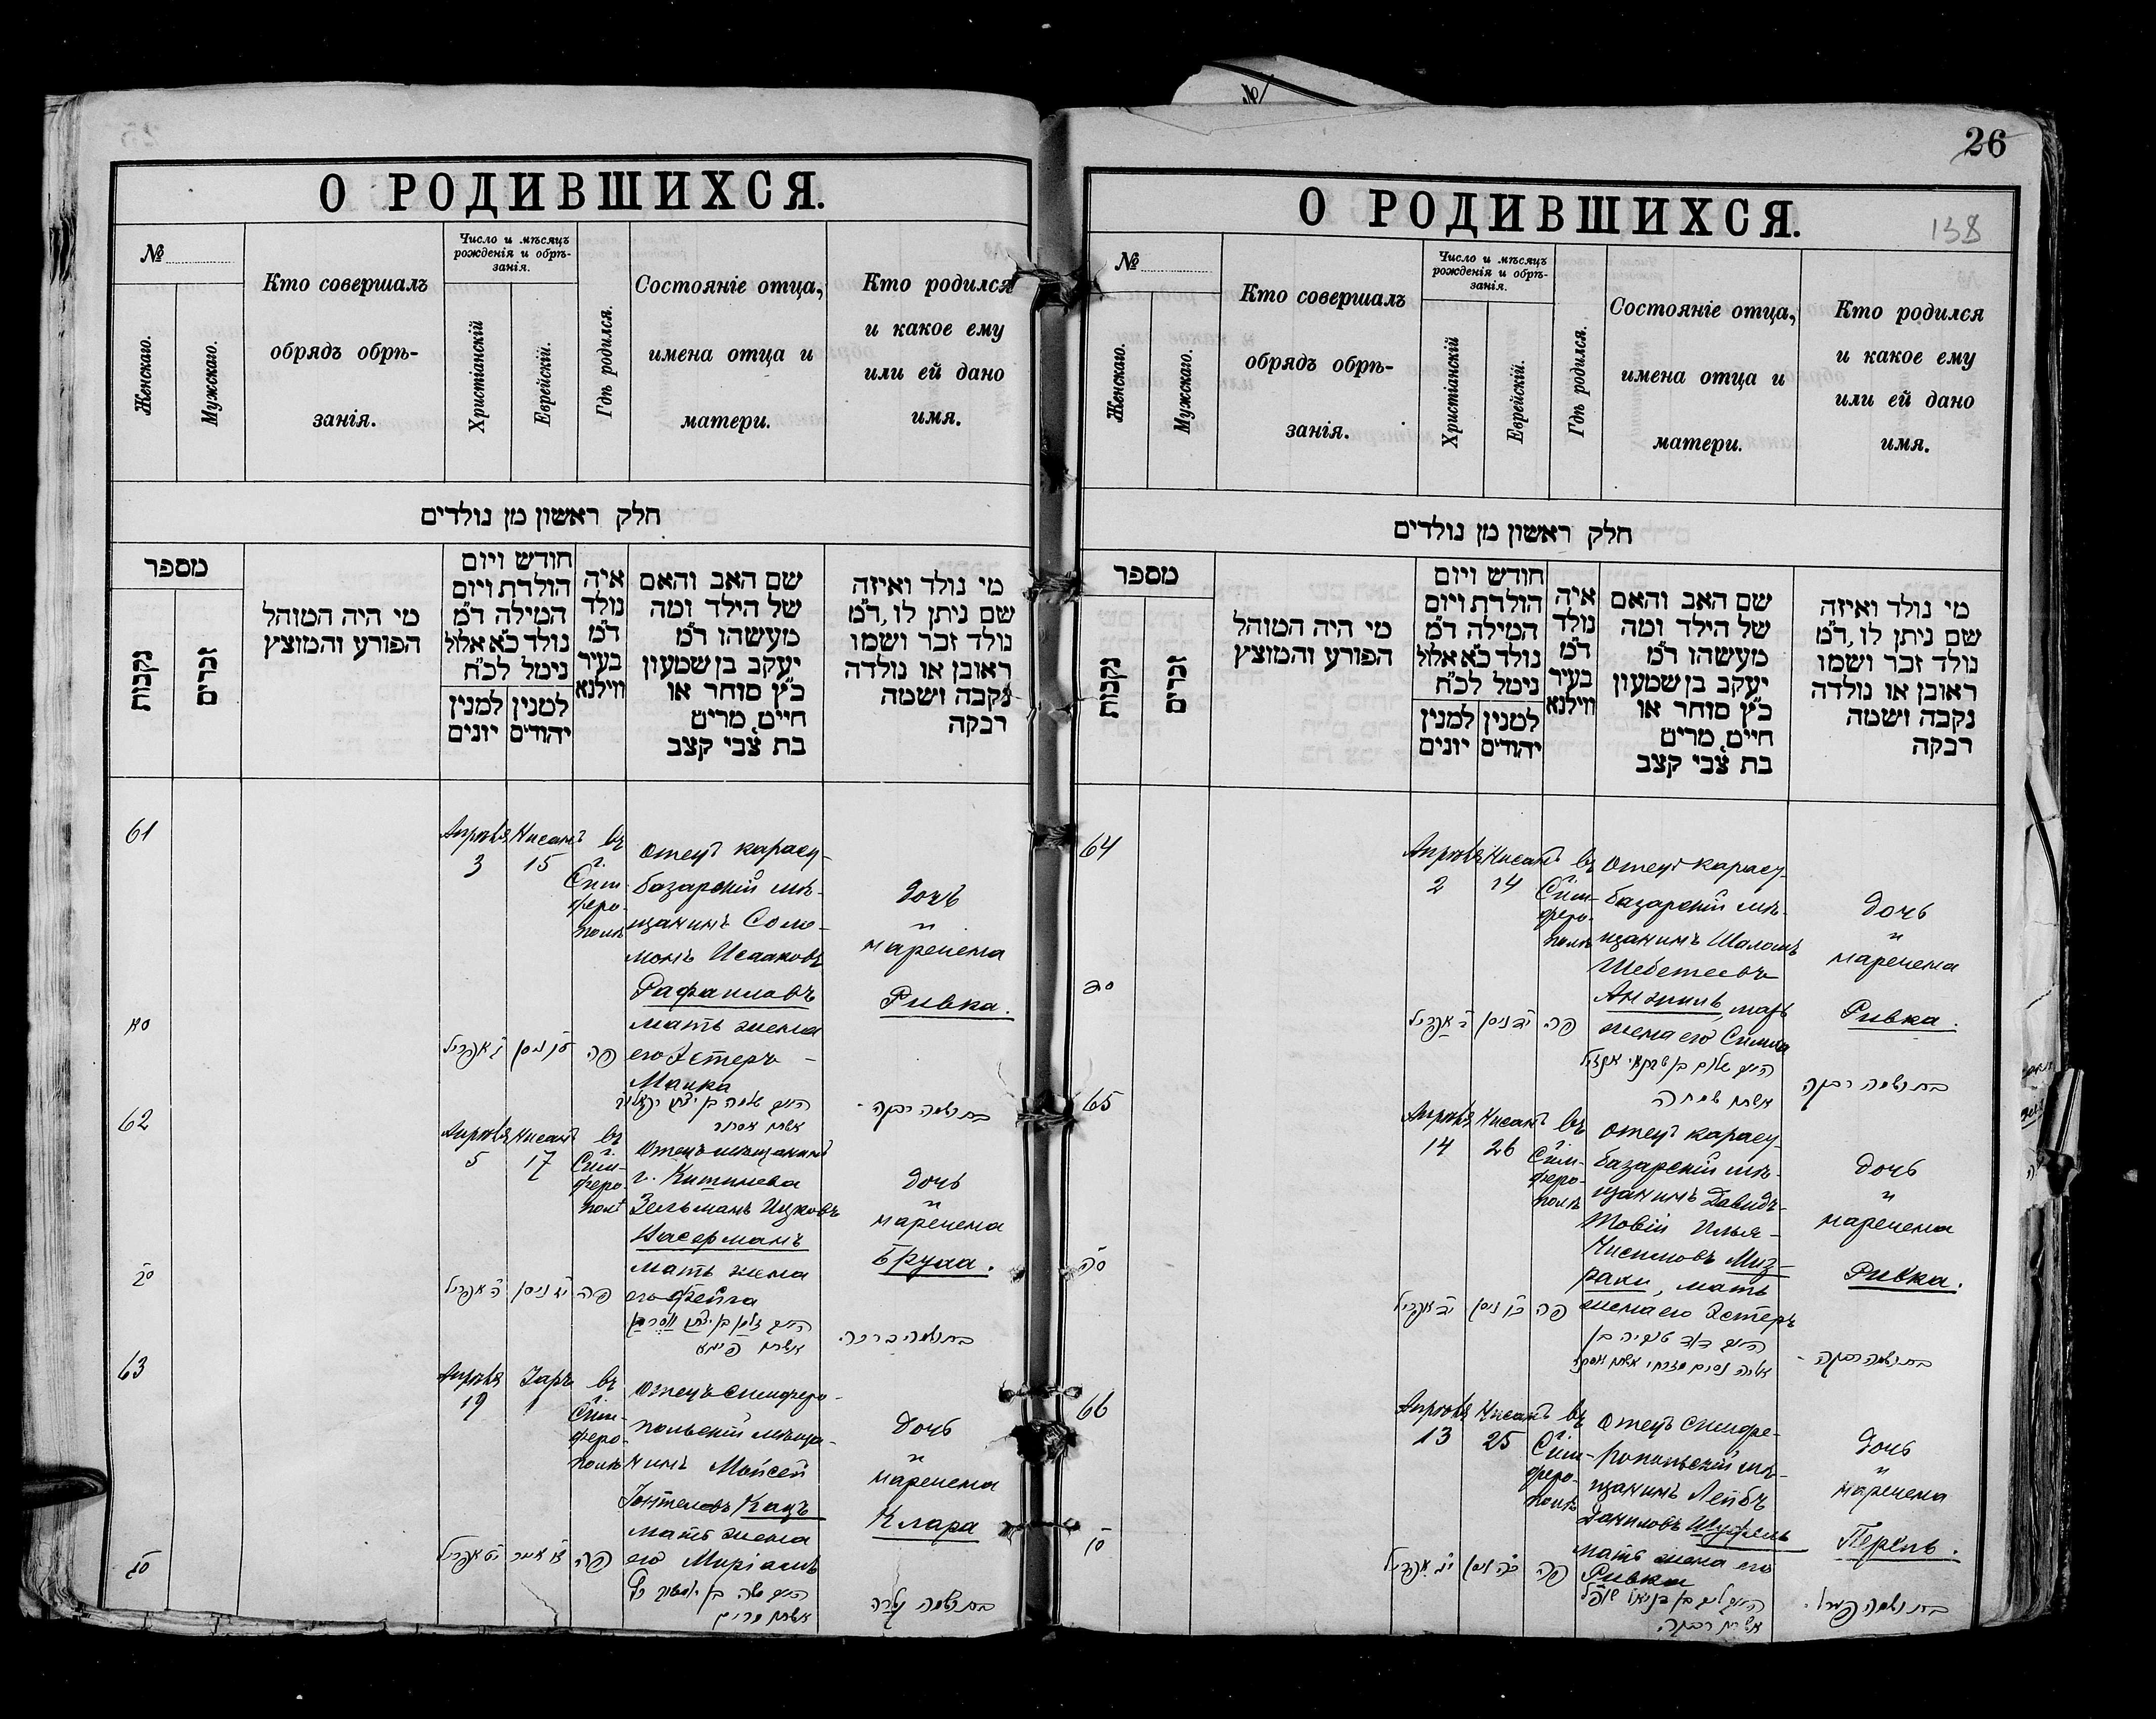 О РОДИВШИХСЯ.
№
Женскаго.
Мужскаго.
Кто совершалъ
обрядъ обрѣ-
занія.
Число и мѣсяцъ
рожденія и обрѣ-
занія.
Христіанскій
Еврейскій.
Гдѣ родился.
Состояніе отца,
имена отца и
матери.
Кто родился
и какое ему
или ей дано
имя.
חלק ראשון מן נולדים
מספר
נקבות
זכרים
מי היה המוהל
הפורע והמוצץ
חודש ויום
הולדת ויום
המילה ד״מ
נולד כ״א אלול
נימל לכ״ח
למנין
יהודים
למנין
יונים
איה
נולד
ד״מ
בעיר
ווילנא
שם האב והאם
של הילד ומה
מעשהו ד״מ
יעקב בן שמעון
כ״ץ סוחר או
חיים, מרים
בת צבי קצב
מי נולד ואיזה
שם ניתן לו, ד״מ
נולד זכר ושמו
ראובן או נולדה
נקבה ושמה
רבקה
61
Апрѣля
3
Нисанъ
15
въ
г.
Сим-
феро-
полѣ
отецъ карасу-
базарскій мѣ-
щанинъ Соло-
монъ Исааковъ
Рафаиловъ
мать жена
его Эстеръ-
Малка
дочь
и
наречена
Ривка.
פה
בת ושמה רבקה
62
Апрѣля
5
Нисанъ
17
въ
г.
Сим-
феро-
полѣ
Отецъ мѣщанинъ
г. Кишинева
Зельманъ Ицковъ
Васерманъ
мать жена
его Фейга
дочь
и
наречена
Бруха.
פה
בת ושמה ברכה
63
Апрѣля
19
Іаръ
1
въ
г.
Сим-
феро-
полѣ
Отецъ симферо-
польскій мѣща-
нинъ Мойсей
Іонтелевъ Кацъ
мать жена
его Миріамъ
Дочь
и
наречена
Клара
פה
אשתו מרים
בת ושמה קלרה
26
138
О РОДИВШИХСЯ.
№
Женскаго.
Мужскаго.
Кто совершалъ
обрядъ обрѣ-
занія.
Число и мѣсяцъ
рожденія и обрѣ-
занія.
Христіанскій
Еврейскій.
Гдѣ родился.
Состояніе отца,
имена отца и
матери.
Кто родился
и какое ему
или ей дано
имя.
חלק ראשון מן נולדים
מספר
נקבות
זכרים
מי היה המוהל
הפורע והמוצץ
חודש ויום
הולדת ויום
המילה ד״מ
נולד כ״א אלול
נימל לכ״ח
למנין
יהודים
למנין
יונים
איה
נולד
ד״מ
בעיר
ווילנא
שם האב והאם
של הילד ומה
מעשהו ד״מ
יעקב בן שמעון
כ״ץ סוחר או
חיים, מרים
בת צבי קצב
מי נולד ואיזה
שם ניתן לו, ד״מ
נולד זכר ושמו
ראובן או נולדה
נקבה ושמה
רבקה
64
Апрѣля
2
Нисанъ
14
въ
г.
Сим-
феро-
полѣ
Отецъ карасу-
базарскій мѣ-
щанинъ Шаломъ
Шебетеевъ
мать
жена его Симха
дочь
и
наречена
Ривка.
פה
אשתו שמחה
בת ושמה רבקה
65
Апрѣля
14
Нисанъ
26
въ
г.
Сим-
феро-
полѣ
отецъ карасу-
базарскій мѣ-
щанинъ Давидъ-
Товій Илья-
Нисимовъ Миз-
рахи, мать
жена его Эстеръ
дочь
и
наречена
Ривка.
פה
בת ושמה רבקה
66
Апрѣля
13
Нисанъ
25
въ
г.
Сим-
феро-
полѣ
отецъ симфе-
ропольскій мѣ-
щанинъ Лейбъ
Даниловъ Шуфель
мать жена его
Ривка
дочь
и
наречена
Перель.
פה
אשתו רבקה
בת ושמה פערל